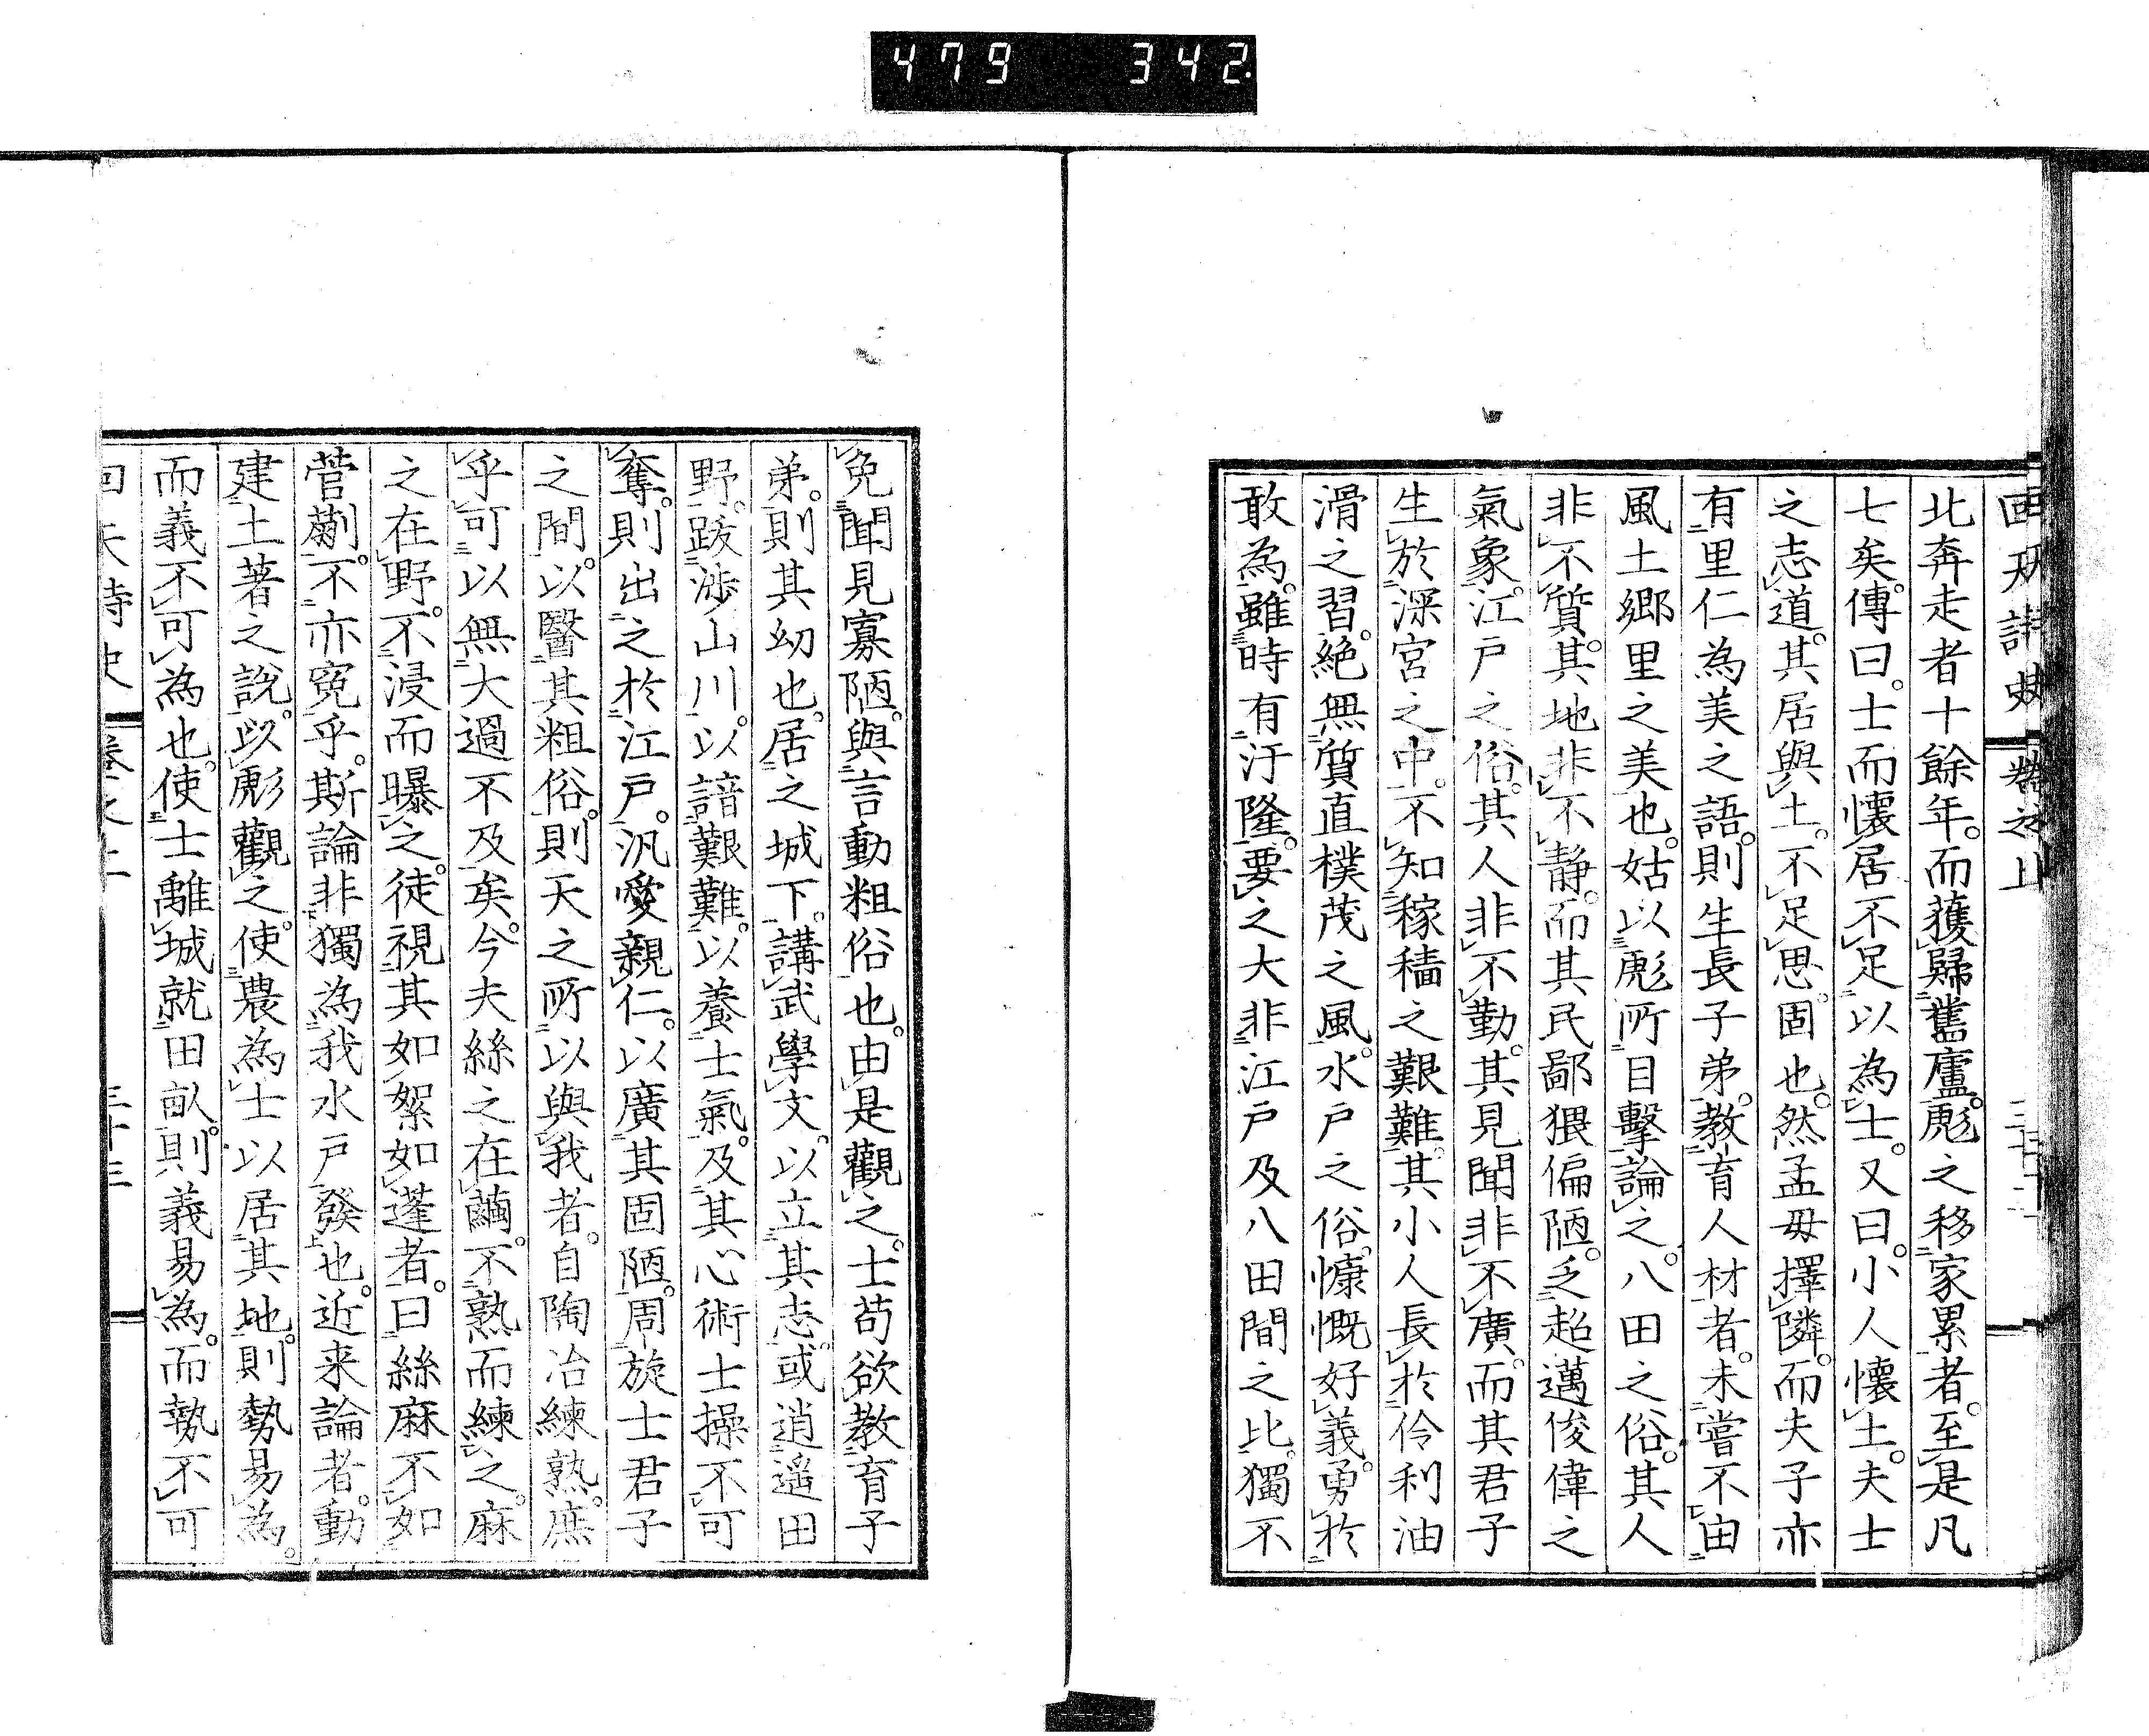 479 342
北奔走者十餘年。而獲歸舊廬。彪之移家累者。至是凡
七矣。傳曰。士而懷居不足以為士。又曰。小人懷土。夫士
之志道。其居與土。不足思固也。然孟母擇隣。而夫子亦
有里仁為美之語。則生長子弟。教育人材者。未嘗不由
風土鄉里之美也。姑以彪所目擊論之。八田之俗。其人
非不質。其地非不静。而其民鄙猥偏陋。乏超邁俊偉之
氣象。江戸之俗。其人非不勤。其見聞非不廣。而其君子
生於深宮之中。不知稼穡之艱難。其小人長於伶利油
滑之習。絶無質直樸茂之風。水戸之俗。慷慨好義勇於
敢為。雖時有汙隆。要之大非江戸及八田間之比。獨不
免聞見寡陋。與言動粗俗也。由是觀之。士苟欲教育子
弟。則其幼也。居之城下。講武學文。以立其志。或逍遙田
野。跋渉山川。以諳艱難。以養士氣。及其心術士操不可
奪。則出之於江戸。汎愛親仁。以廣其固陋。周旋士君子
之間。以醫其粗俗。則天之所以與我者。自陶冶練熟。庶
乎可以無大過不及矣。今夫絲之在繭。不熟而練之。麻
之在野。不浸而曝之。徒視其如絮如蓬者。曰絲麻不如
菅蒯。不亦寃乎。斯論非獨為我水戸發也。近来論者。動
建土著之說。以彪觀之。使農為士以居其地。則勢易為。
而義不可為也。使士離城就田畝。則義易為。而勢不可
回天詩史 卷之二 三十三